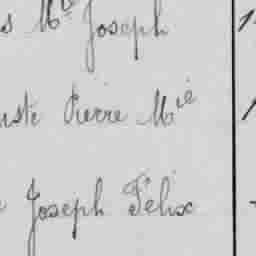 s Mie Joseph
uste Pierre Mie
Joseph Félix